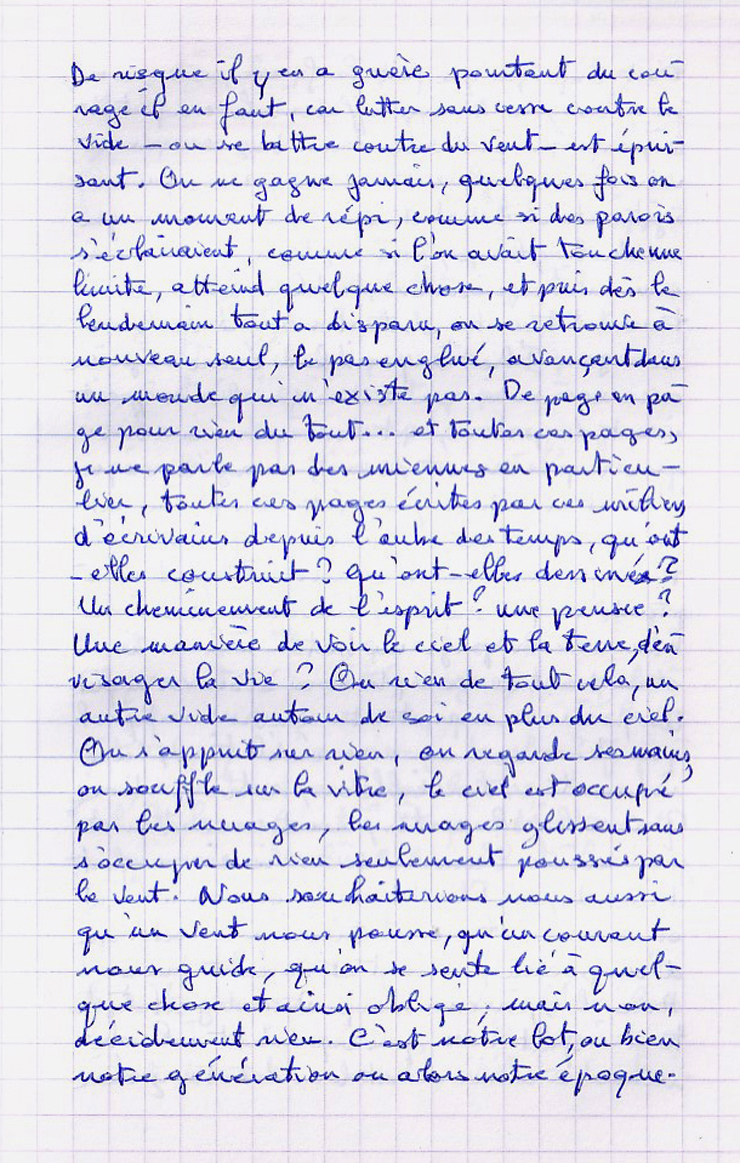 De risque il y en a guère pourtant du cou
rage il en faut, car lutter sans cesse contre le
vide – ou se battre contre du vent – est épui-
sant. On ne gagne jamais, quelques fois on
a un moment de répi, comme si des parois
s'éclairaient, comme si l'on avait touche une
limite, atteind quelque chose, et puis dès le
lendemain tout a disparu, on se retrouve à
nouveau seul, le pas englué, avançant dans
un monde qui n'existe pas. De page en pa
ge pour rien du tout... et toutes ces pages,
je ne parle pas des miennes en particu-
lier, toutes ces pages écrites par ces milliers
d'écrivains depuis l'aube des temps, qu'ont
-elles construit ? qu'ont-elles dessinés ?
Un cheminement de l'esprit ? une pensée ?
Une manière de voir le ciel et la terre, d'en
visager la vie ? Ou rien de tout cela, un
autre vide autour de soi en plus du ciel.
On s'appuit sur rien, on regarde ses mains,
on souffle sur la vitre, le ciel est occupé
par les nuages, les nuages glissent sans
s'occuper de rien seulement poussés par
le vent. Nous souhaiterions nous aussi
qu'un vent nous pousse, qu'un courant
nous guide, qu'on se sente lié à quel-
que chose et ainsi obligé, mais non,
décidement rien. C'est notre lot, ou bien
notre génération ou alors notre époque.